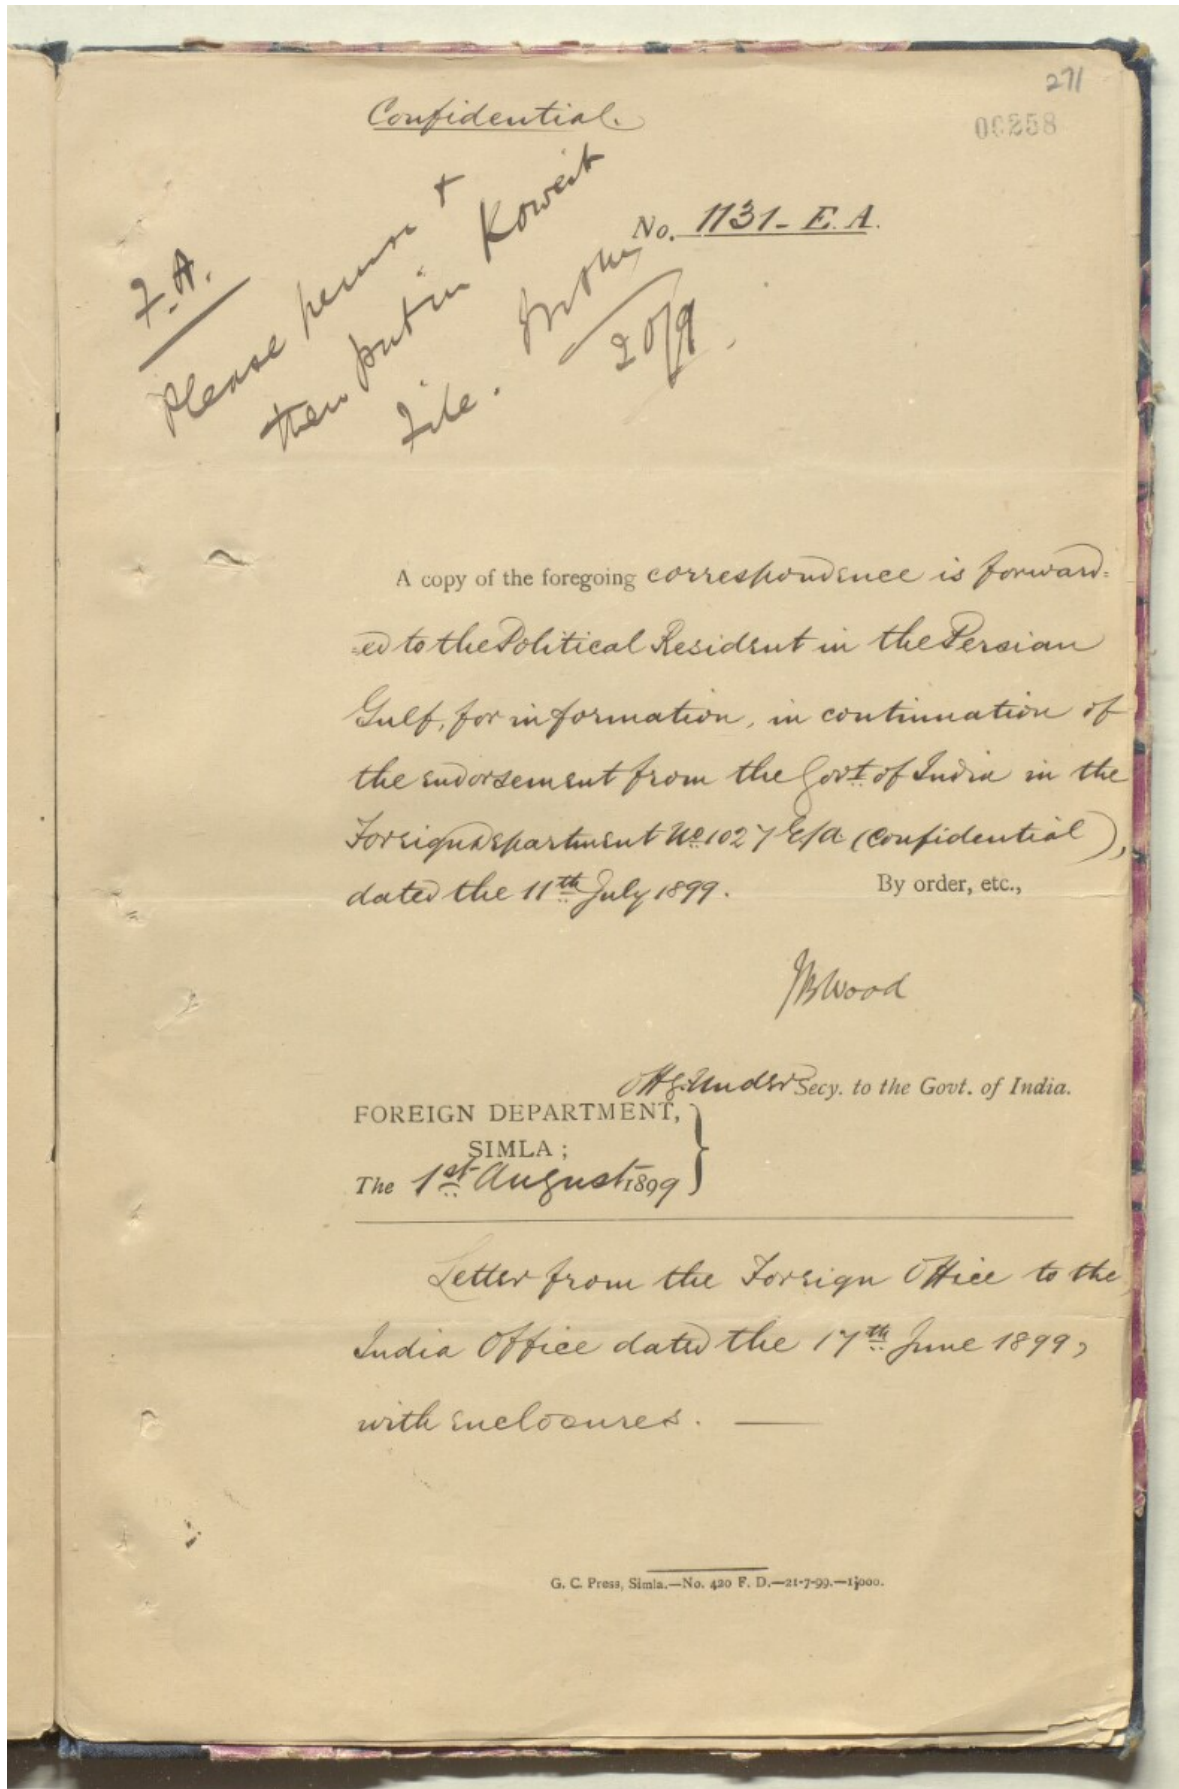 271
00258
Confidential.
No. 1131-E.A.
F.A.
Please peruse &
then put in Koweit
File.
20/9.
A copy of the foregoing correspondence is forward=
=ed to the Political Resident in the Persian
Gulf, for information, in continuation of
the endorsement from the Govt. of India in the
Foreign Department No. 1027 E/A (Confidential),
dated the 11th July 1899. By order, etc.,
JBWood
Offg. Under Secy. to the Govt. of India.
FOREIGN DEPARTMENT,
SIMLA;
The 1st August 1899
Letter from the Foreign Office to the
India Office dated the 17th June 1899,
with enclosures. —
G. C. Press, Simla.—No. 420 F. D.—21-7-99.—1,000.